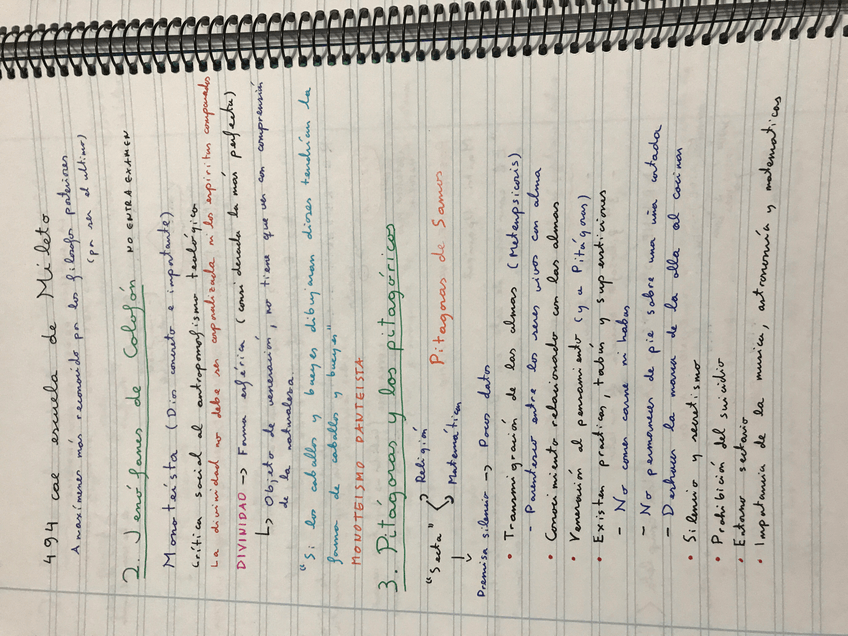 494 cae escuela de Mileto
Anaxímenes más reconocido por los filósofos posteriores
(por ser el ultimo)
2. Jenófanes de Colofón NO ENTRA EXAMEN
Monoteísta (Dios concreto e importante)
Crítica social al antropomorfismo teológico
La divinidad no debe ser corporalizada ni los espiritus comparados
DIVINIDAD -> Forma esférica (considerada la más perfecta)
↳ Objeto de veneración, no tiene que ver con comprensión
de la naturaleza
"Si los caballos y bueyes dibujaran dioses tendrían la
forma de caballos y bueyes"
MONOTEISMO PANTEISTA
3. Pitágoras y los pitagóricos
Pitagoras de Samos
"Secta" Religión
Matemáticas
Premisa silencio -> Pocos datos
• Transmigración de las almas (Metempsicosis)
- Parentesco entre los seres vivos con alma
• Conocimiento relacionado con las almas
• Veneración al pensamiento (y a Pitágoras)
• Existen practicas, tabús y supersticiones
- No comer carne ni habas
- No permanecer de pie sobre una uña cortada
- Deshacer la marca de la olla al cocinar
• Silencio y secretismo
• Prohibición del suicidio
• Entorno sectario
• Importancia de la musica, astronomía y matematicas